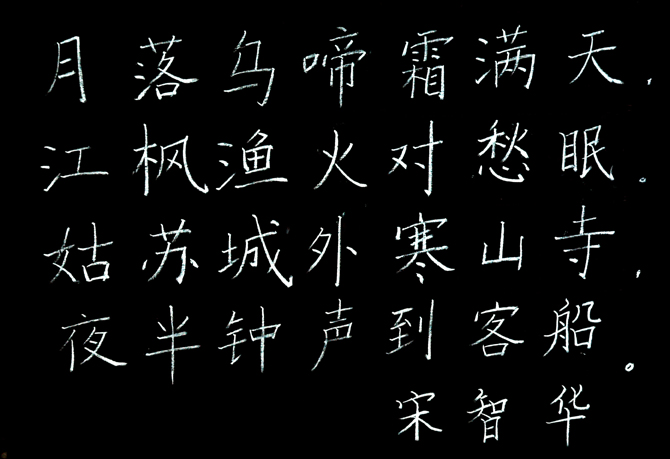 月落乌啼霜满天，
江枫渔火对愁眠。
姑苏城外寒山寺，
夜半钟声到客船。
宋智华